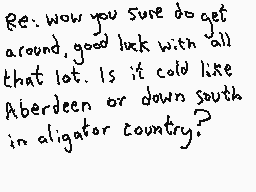 Re: wow you sure do get
around, good luck with all
that lot. Is it cold like
Aberdeen or down south
in aligator country?